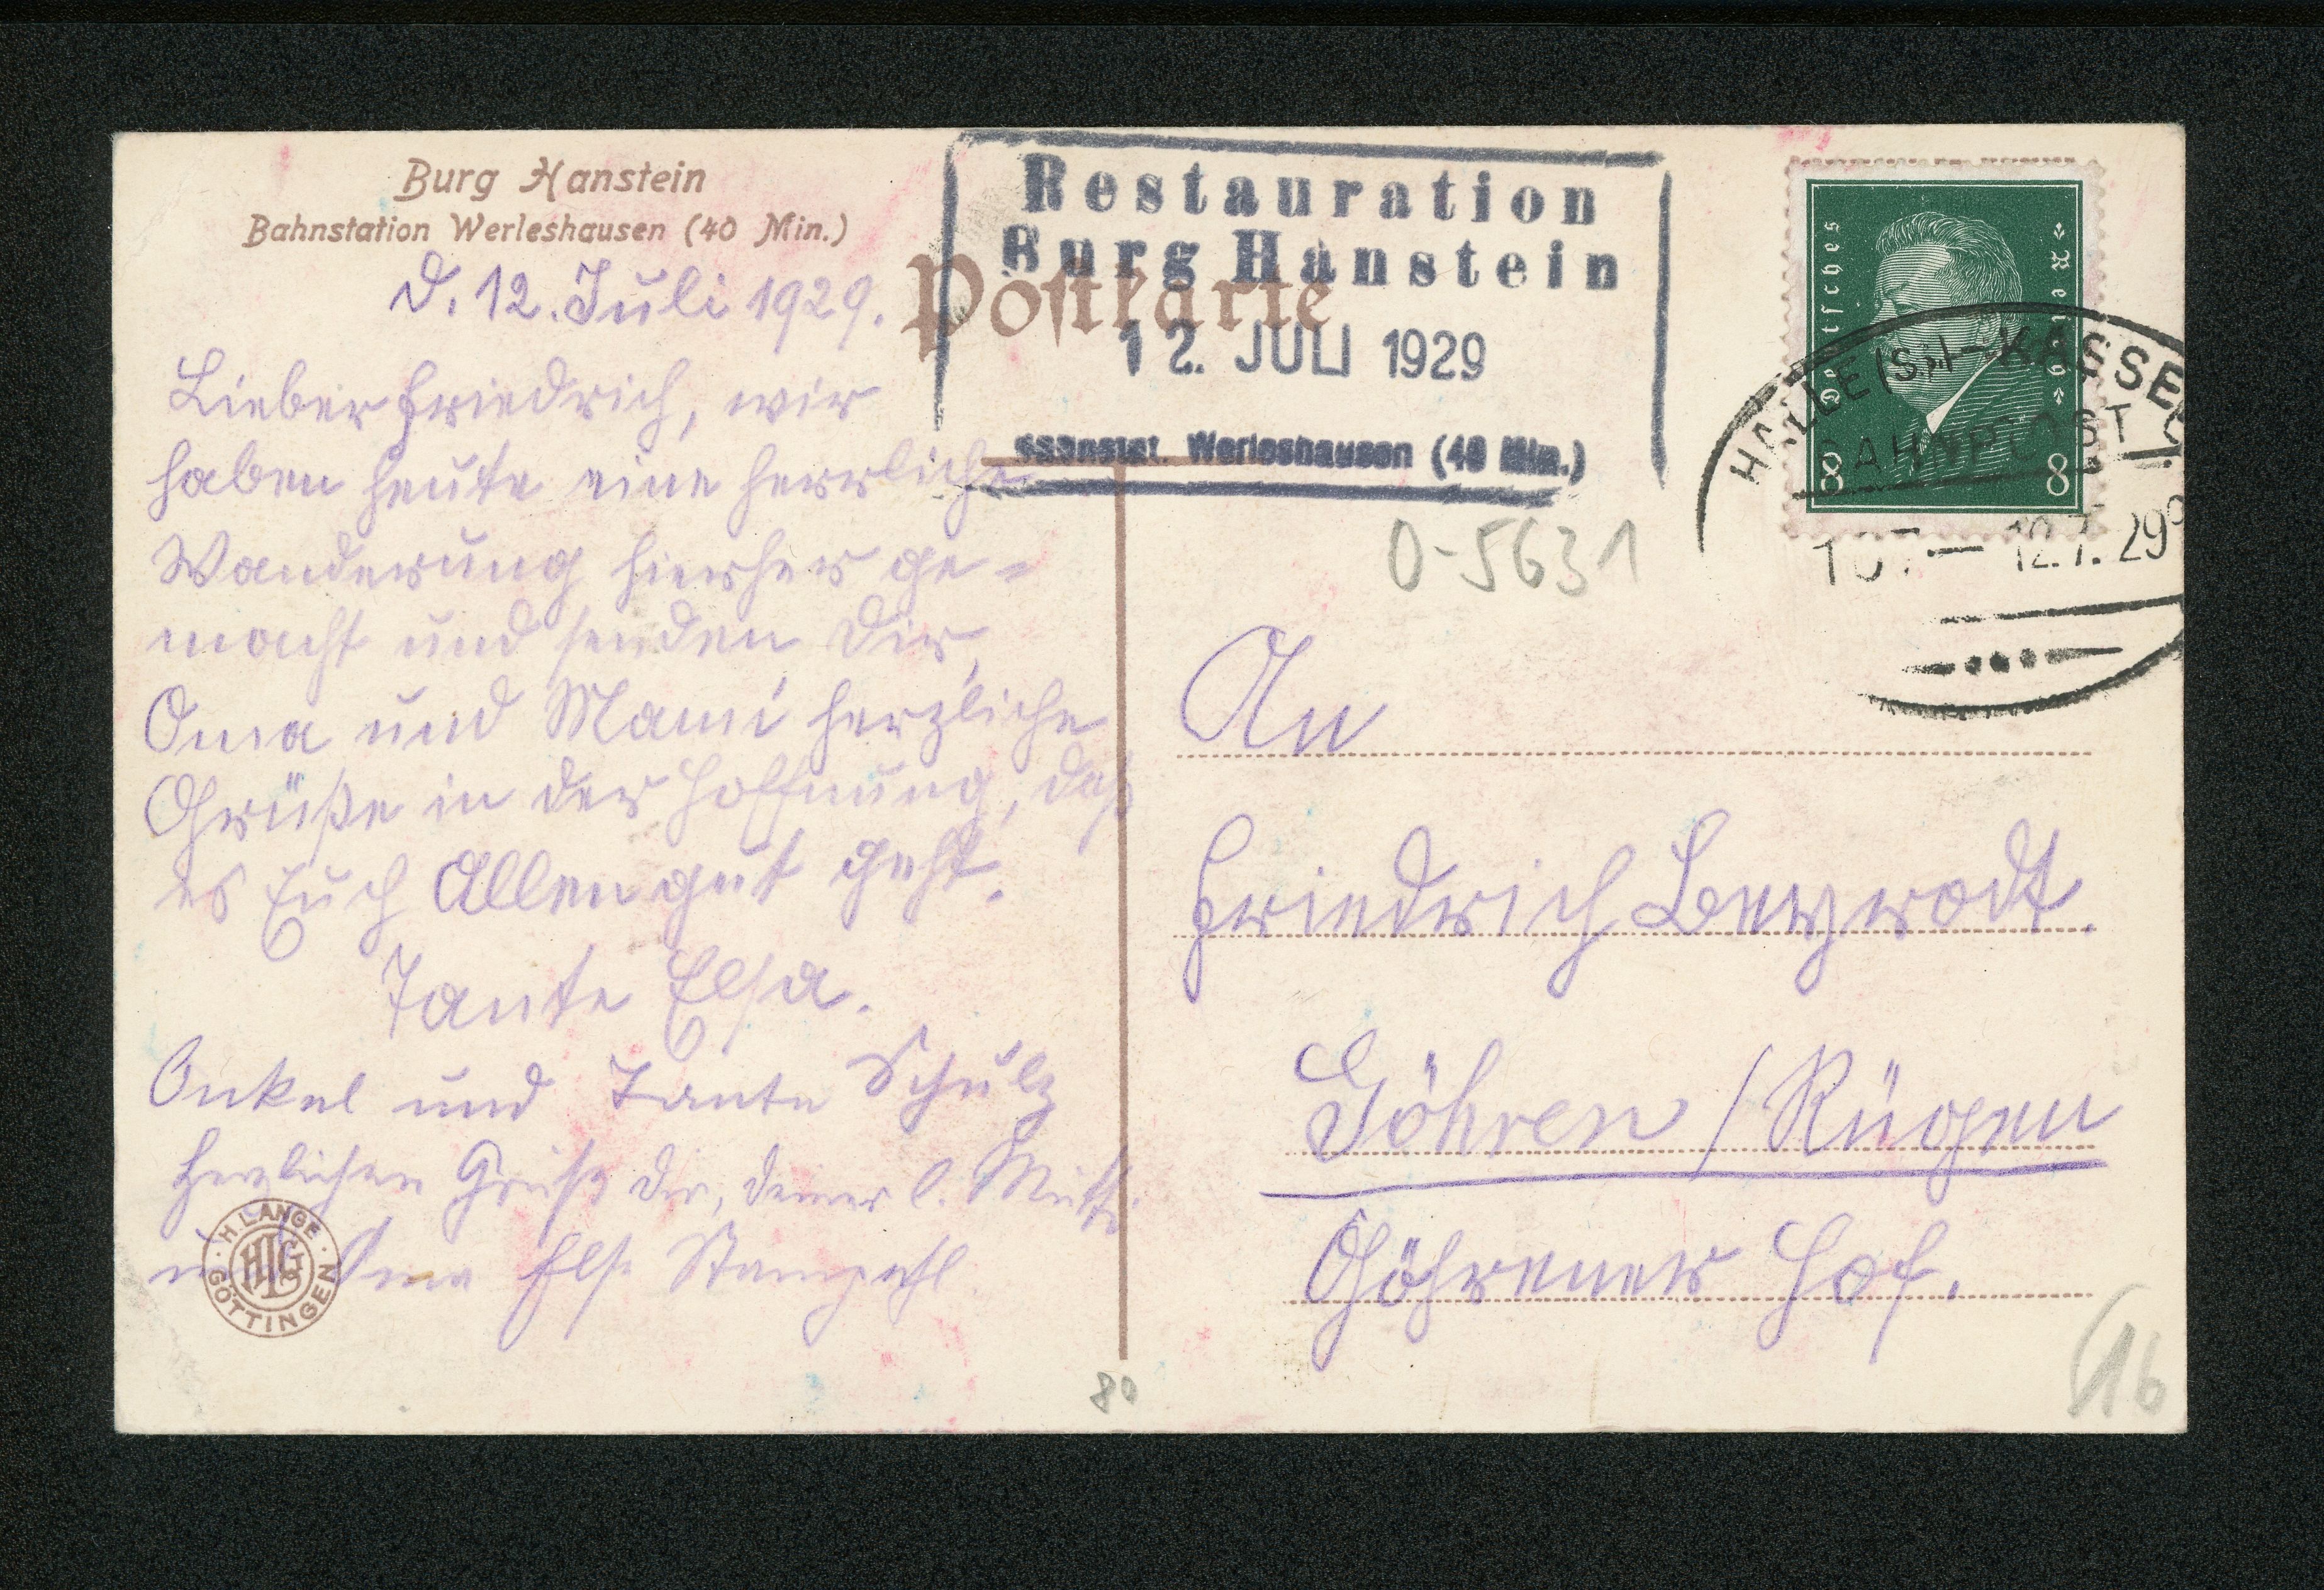 Burg Hanstein
Bahnstation Werleshausen (40 Min.)
Postkarte
Restauration
Burg Hanstein
12. JULI 1929
Bahnstat. Werleshausen (40 Min.)
Deutsches Reich
8 8
HALLE (S.) - KASSEL
BAHNPOST
12.7.29
0-5631
D. 12. Juli 1929.
Lieber Friedrich, wir
haben heute eine herrliche
Wanderung hierher ge-
macht und senden Dir,
Oma und Mami herzliche
Grüße in der Hoffnung, daß
es Euch Allen gut geht.
Tante Elsa.
Onkel und Tante Schulz
Herzlichen Gruß dir, deiner l. Mutti
u. Oma Else
An
Friedrich
Göhren / Rügen
Göhrener Hof.
H. LANGE
HLG
GÖTTINGEN
80
16